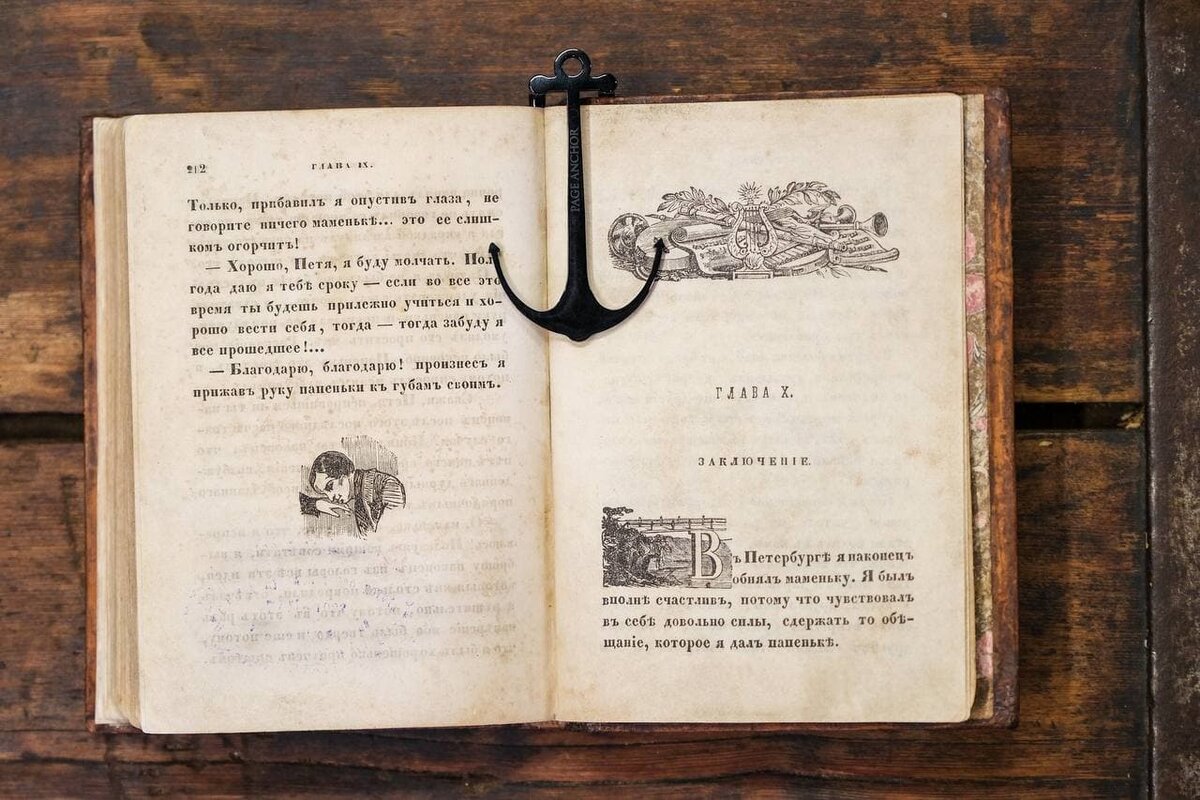 212
ГЛАВА IX.
Только, прибавилъ я опустивъ глаза, не
говорите ничего маменькѣ... это ее слиш-
комъ огорчитъ!
— Хорошо, Петя, я буду молчать. Пол
года даю я тебѣ сроку — если во все это
время ты будешь прилежно учиться и хо-
рошо вести себя, тогда — тогда забуду я
все прошедшее!...
— Благодарю, благодарю! произнесъ я
прижавъ руку папеньки къ губамъ своимъ.
PAGE ANCHOR
ГЛАВА X.
ЗАКЛЮЧЕНІЕ.
Въ Петербургѣ я наконецъ
обнялъ маменьку. Я былъ
вполнѣ счастливъ, потому что чувствовалъ
въ себѣ довольно силы, сдержать то обѣ-
щаніе, которое я далъ папенькѣ.